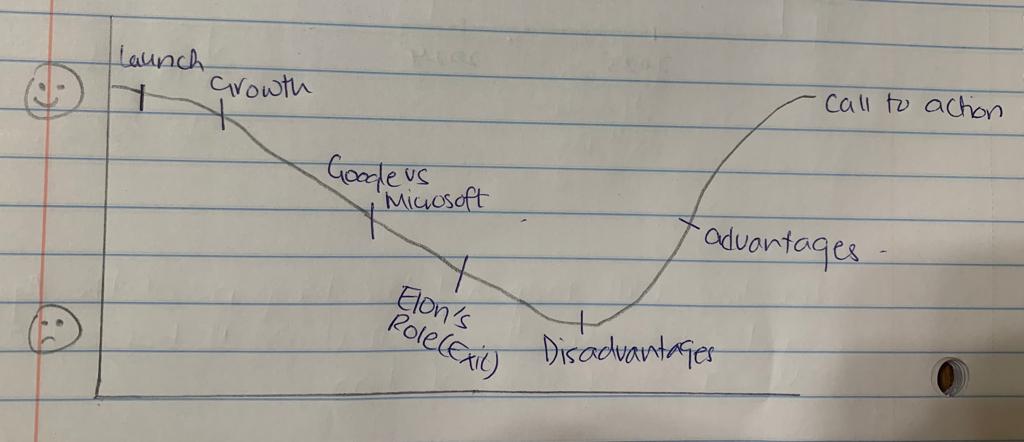 Launch
Growth
Google vs
Microsoft
Elon's
Role (Exit)
Disadvantages
advantages
call to action